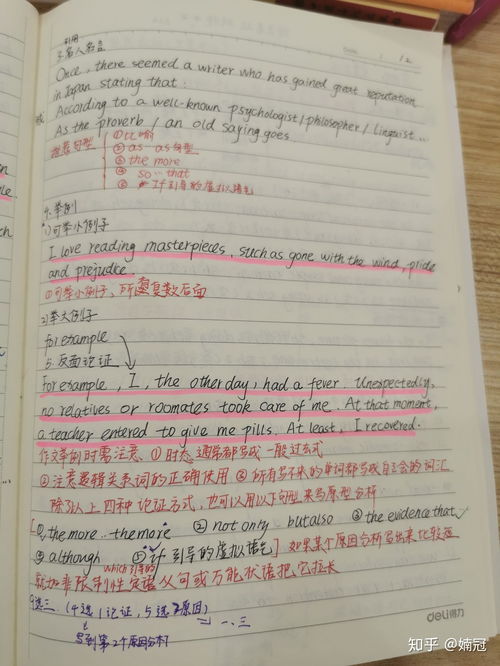 引用
3.名人名言
Date. 1 / 2
Once, there seemed a writer who has gained great reputation
in Japan stating that :
或 According to a well-known psychologist/philosepher/linguist...
As the proverb / an old saying goes
推荐句型 ①比喻
② as as句型
③ the more
④ so··that
⑤ If引导的虚拟语气
4.举例
1)可举小例子
I love reading masterpieces, such as gone with the wind, pride
and prejudice.
①可举小例子、所复数后面
2)举大例子
for example
5.反面论证
For example, I, the other day, had a fever. Unexpectedly,
no relatives or roomates took care of me. At that moment,
a teacher entered to give me pills. At least, I recovered.
作文举例时需注意、①时态通常都写成一般过去式
②注意逻辑关系词的正确使用 ③所有写不来的单词都写成自己会的词汇
除了以上四种论证方式，也可以用以下句型来写原型分析
①the more··the more ② not only but also ③ the evidence that
④ although ⑤ if引导的虚拟语气] 如果某个原因分析写出来比较短
which引导的
就加非限制性定语从句或万能状语把它拉长
9选三. (4选1论证, 5选2原因)
写到第2个原因分析
= 一、三
deli得力
知乎 @婻冠